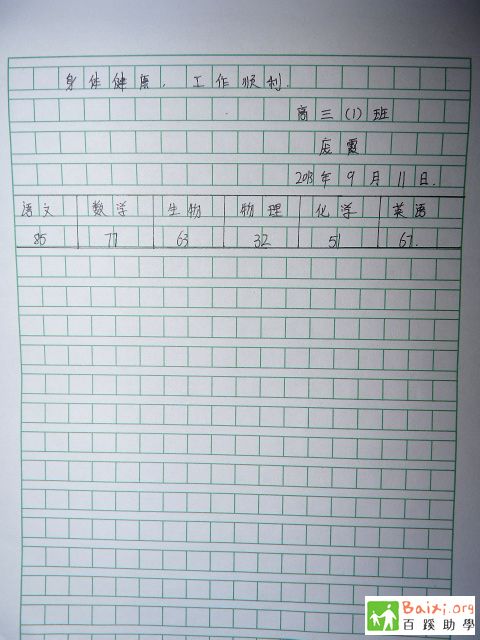 身体健康，工作顺利.
高三（1）班
庞霞
2013年9月11日.
语文 数学 生物 物理 化学 英语
85 77 63 32 51 67.
Baixi.org
百蹊助學